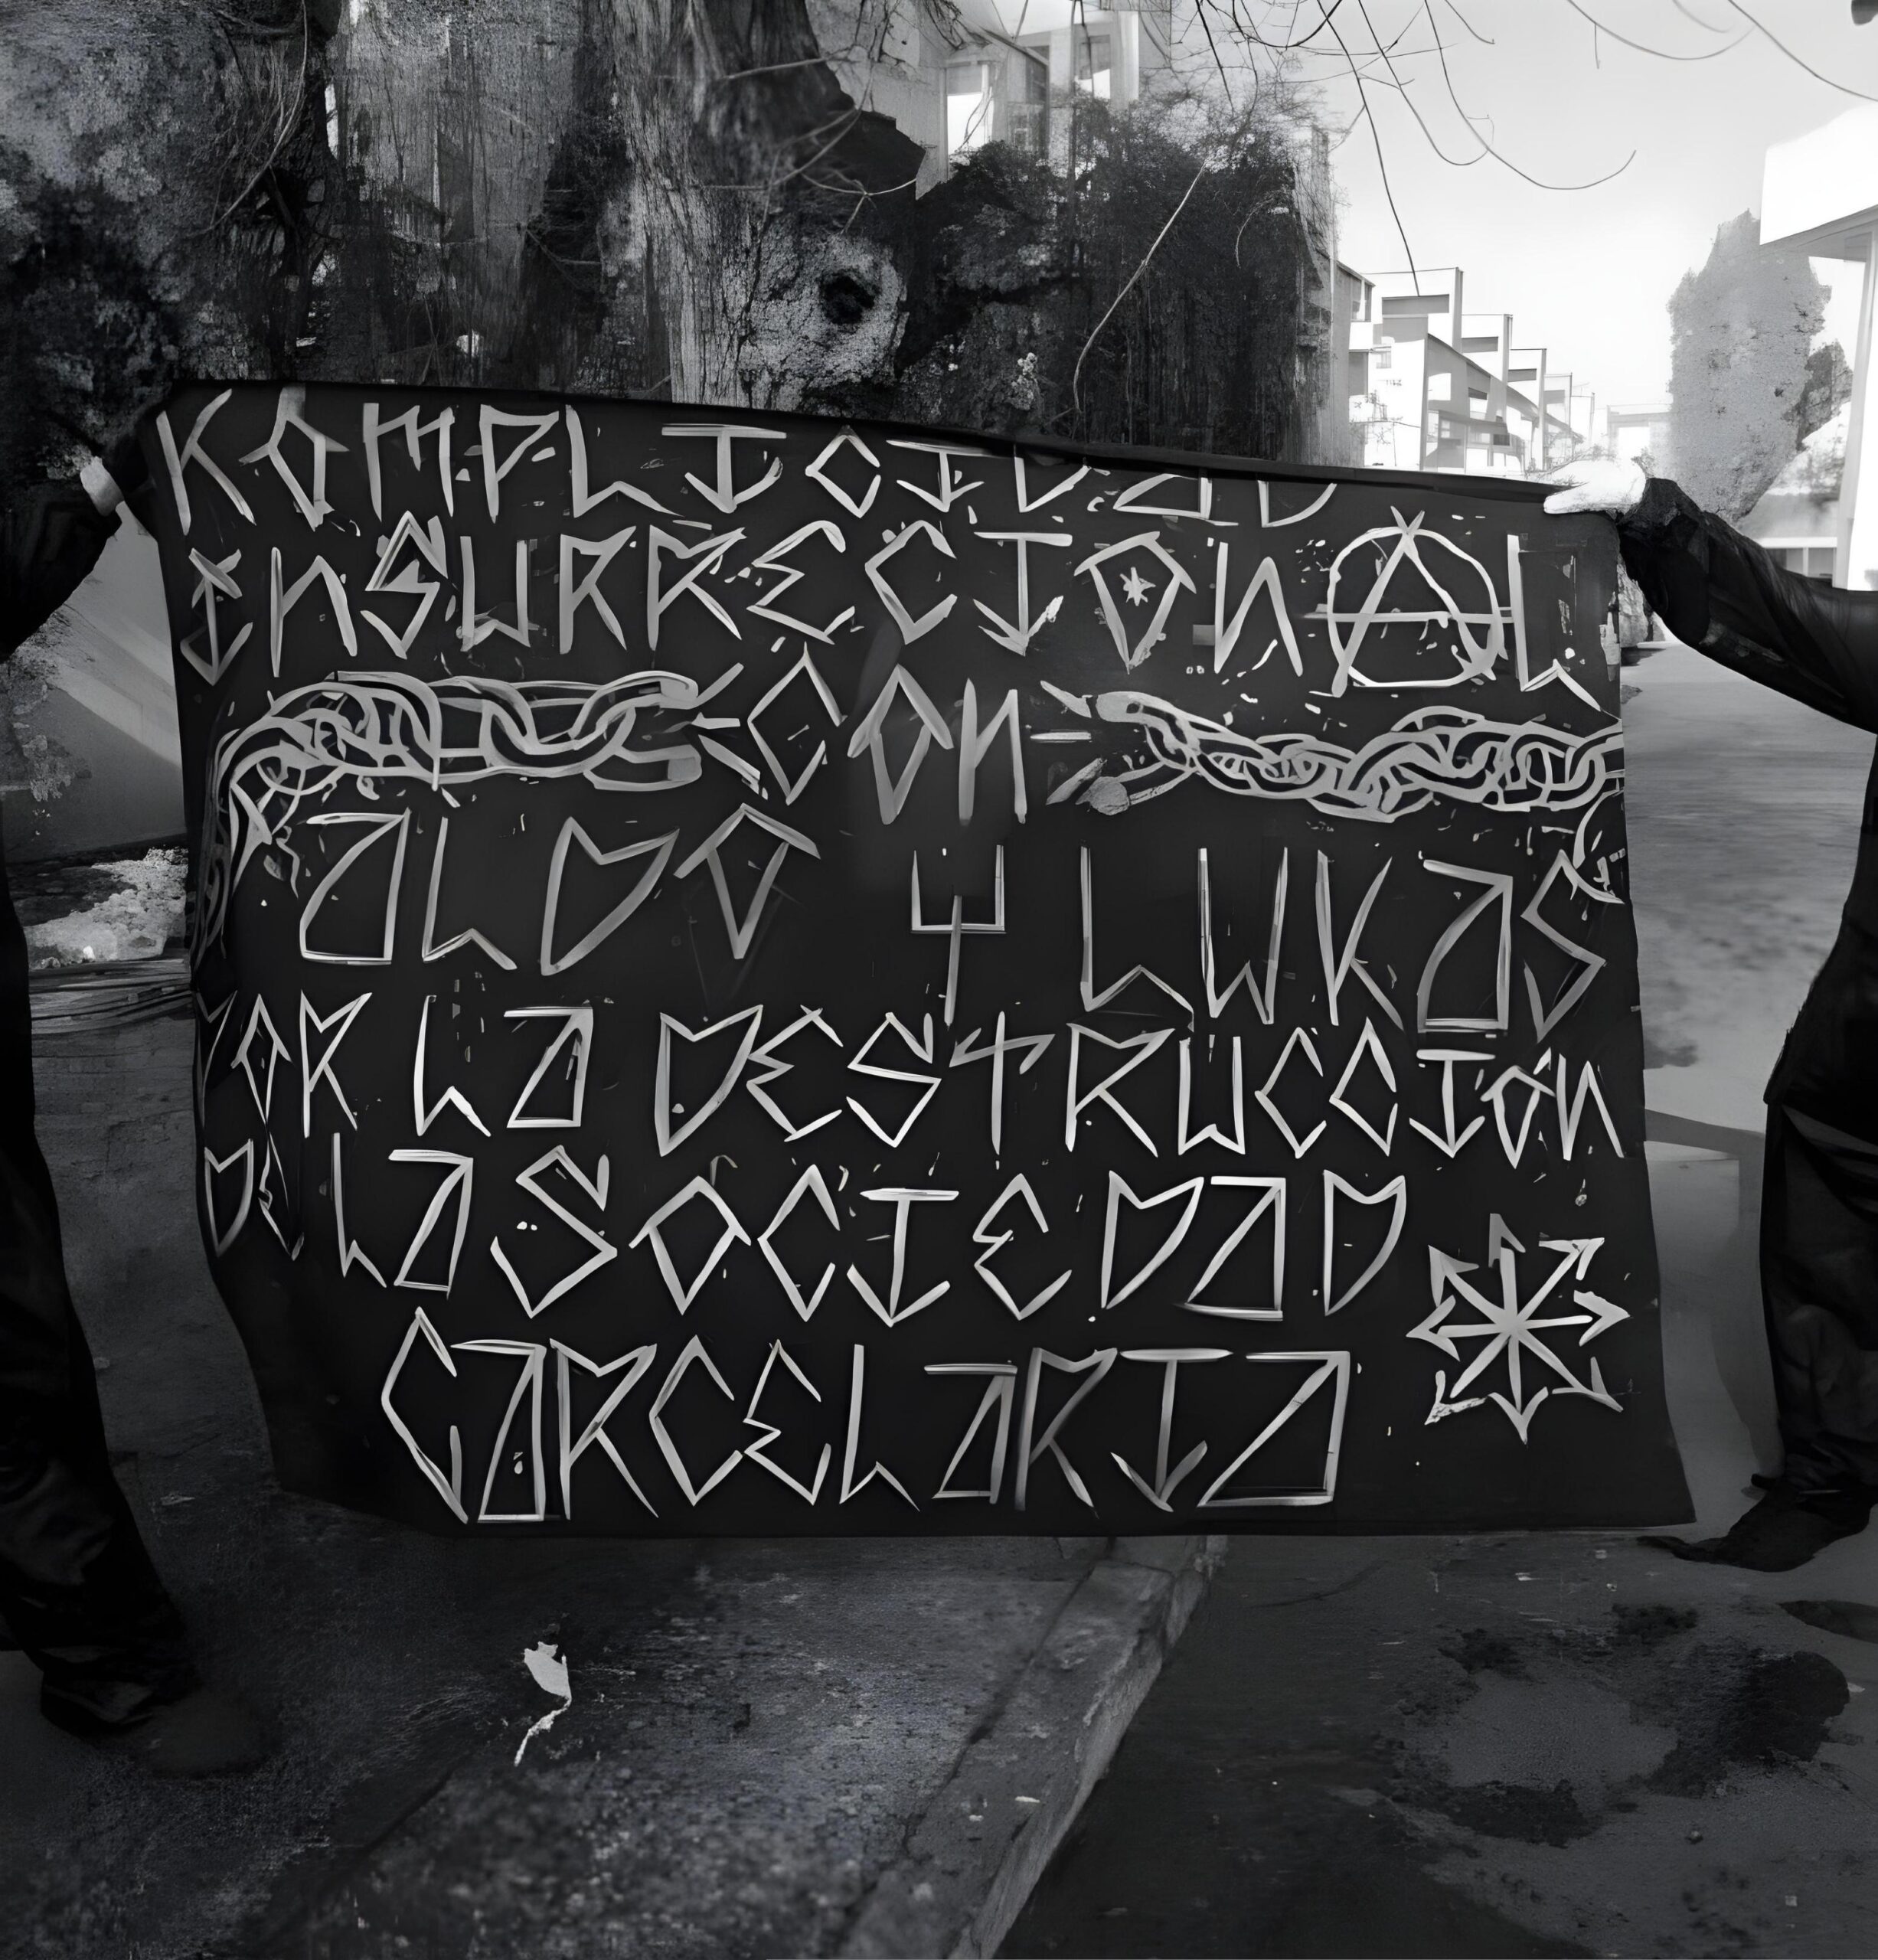 KOMPLICIDAD
INSURRECCIONAL
-CON-
ALDO Y LUKAS
POR LA DESTRUCCIÓN
DE LA SOCIEDAD
CARCELARIA